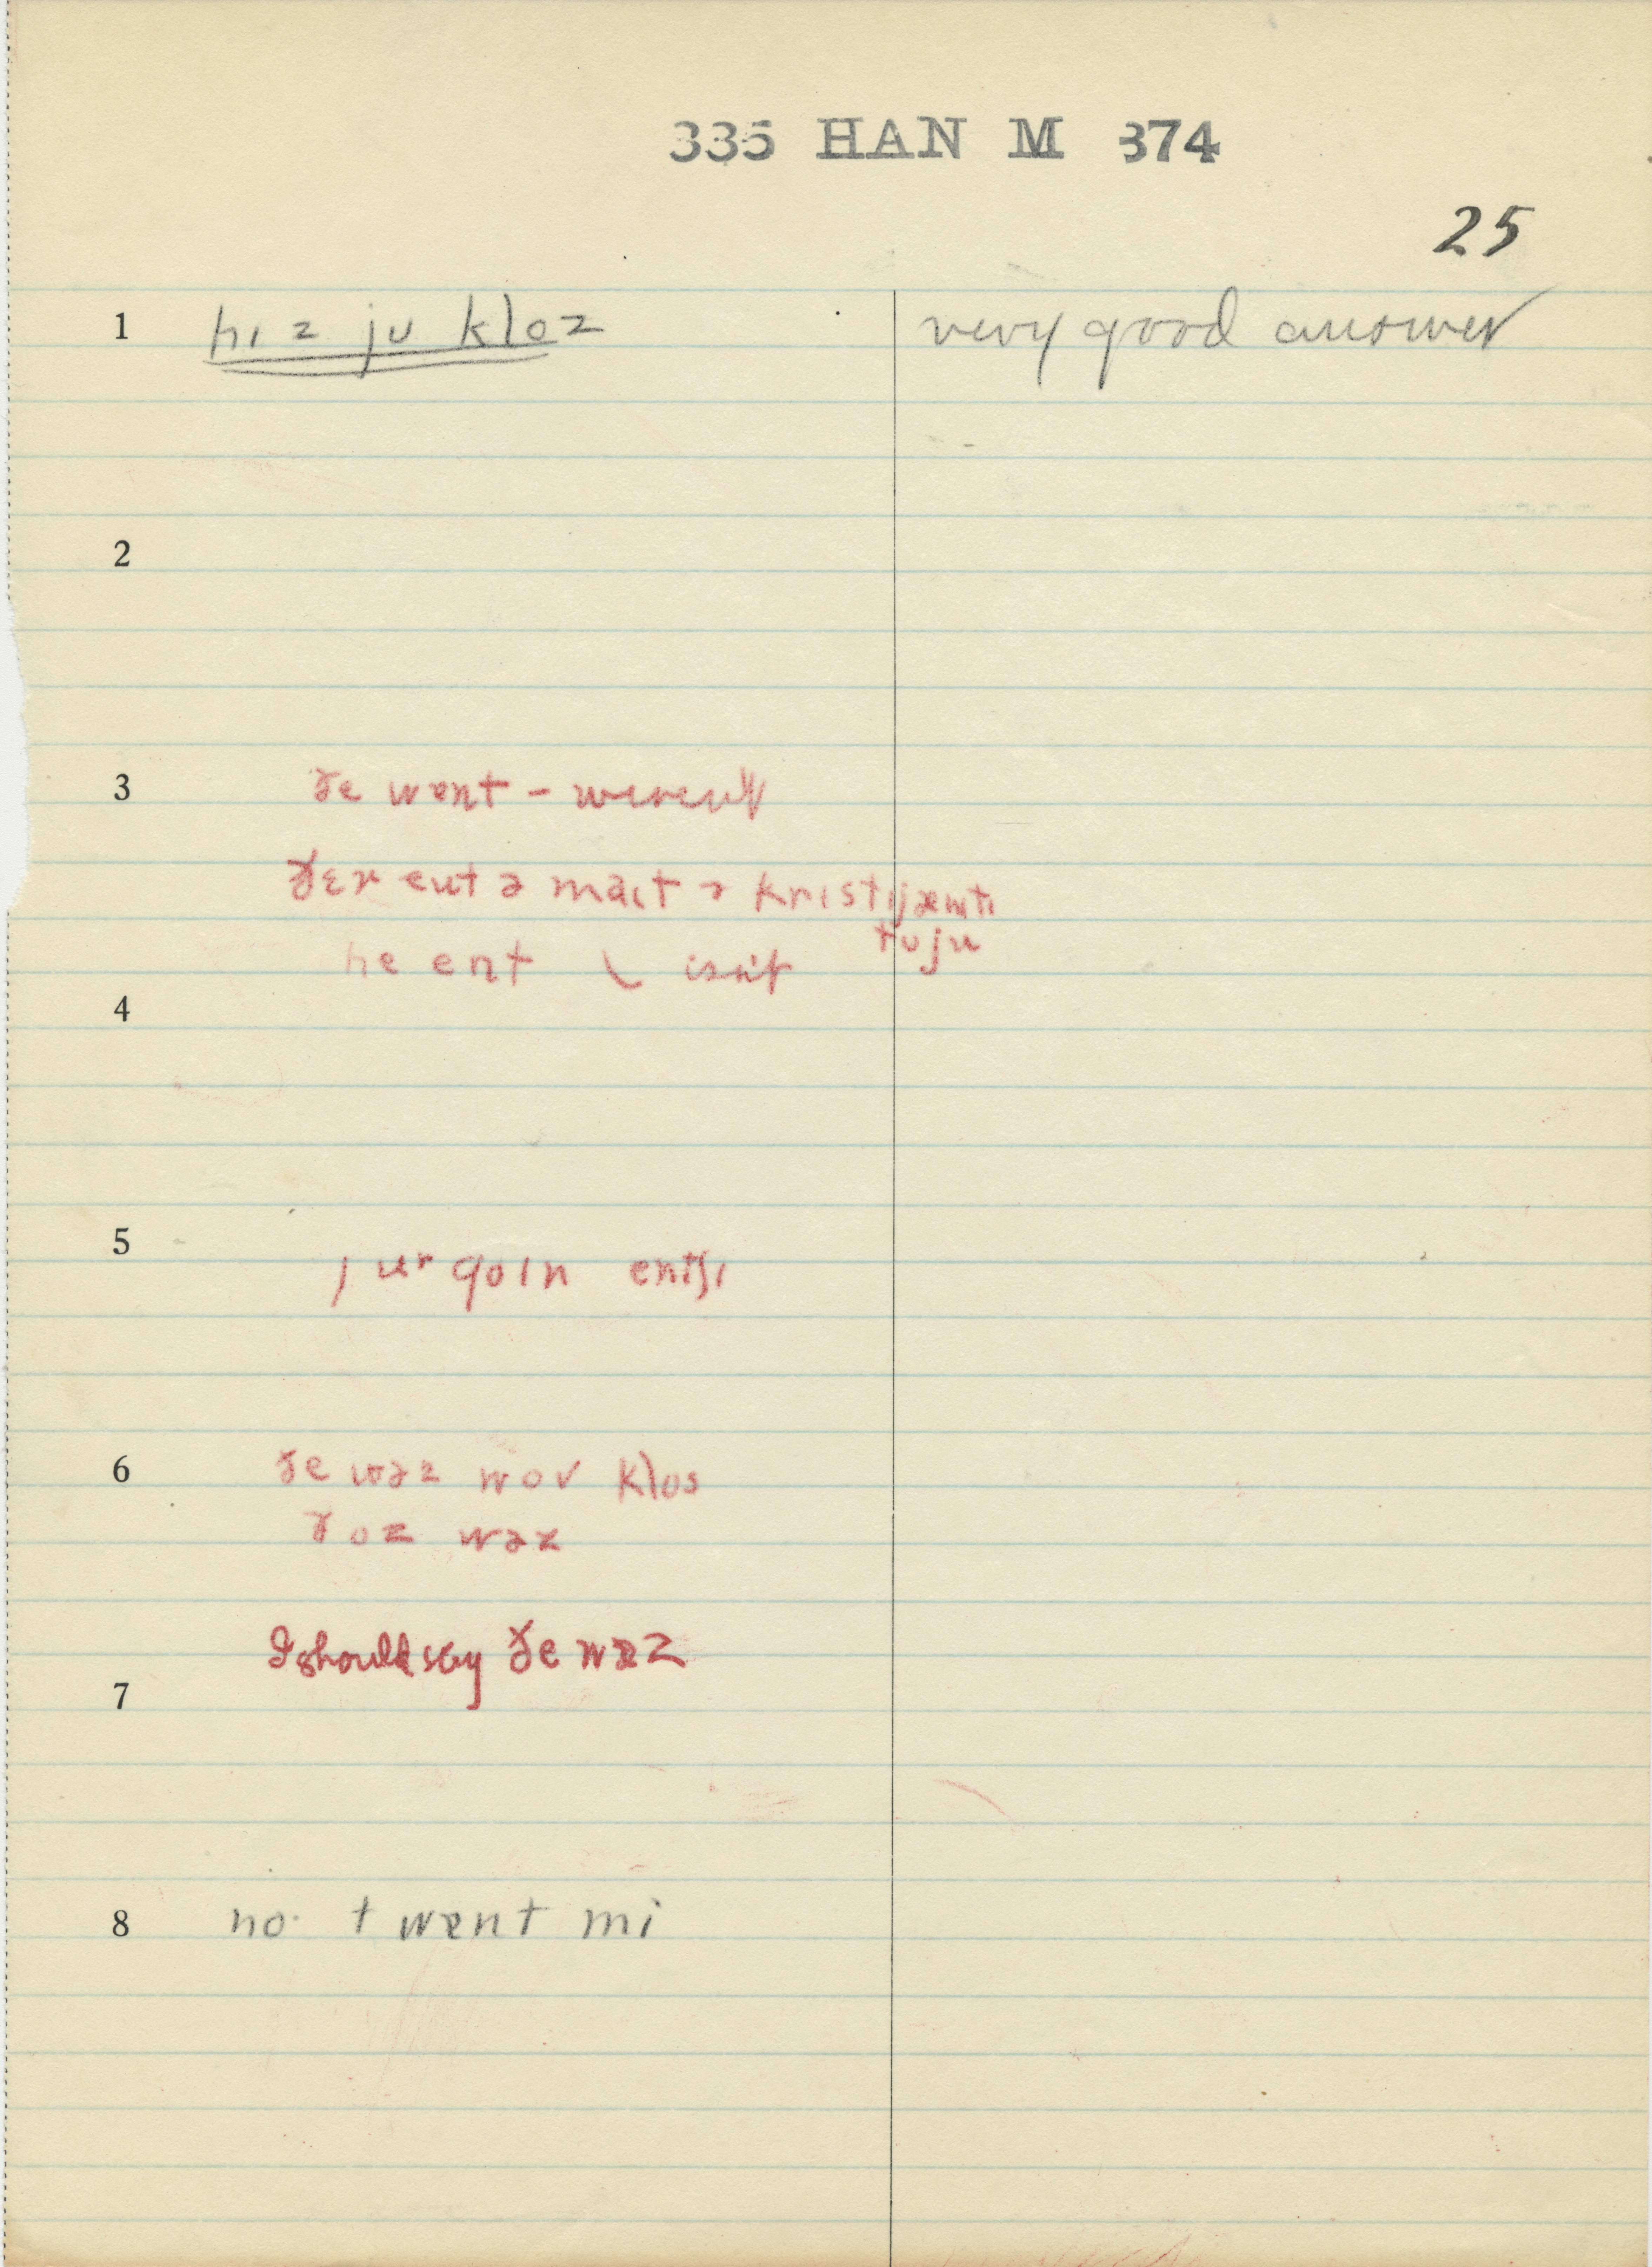 335 HAN M 374
25
1 hɪz ju kloz very good answer
2
3 ðe wɒnt – weren't
ðɛr ent ə maɪt ə krɪstɪjænɪti
tu ju
he ent ( isn't
4
5 jur goɪn entʃɪ
6 ðe wəz wov klos
ðoz wəz
I should say ðe wəz
7
8 no. twɒnt mi